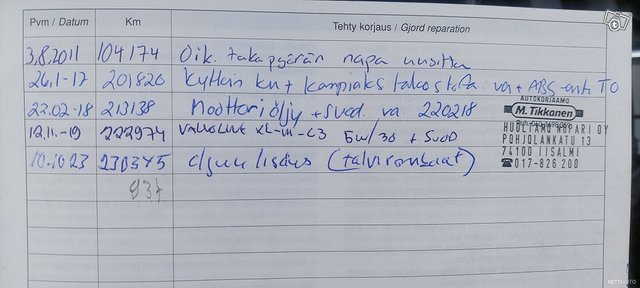 Pvm / Datum Km Tehty korjaus / Gjord reparation
3.8.2011 104174 Oik. takapyörän napa uusittu
26.1-17 201820 Kytkin kn + kampiaks takastefa va + ABS-anti TO
22.02-18 213138 Moottoriöljy + suod. va 220218
AUTOKORJAAMO
M.Tikkanen
12.11.-19 222974 VALVOLINE XL-III-C3 5W/30 + SUOD
HUOLTAMO NOPARI OY
POHJOLANKATU 13
74100 IISALMI
☎017-826 200
10.10.23 230345 öljyn lisäys (talvirenkaat)
937
NETTIAUTO